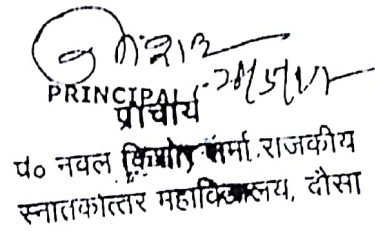 PRINCIPAL
प्राचार्य
पं० नवल किशोर शर्मा राजकीय
स्नातकोत्तर महाविद्यालय, दौसा